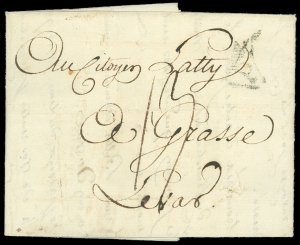 Au Citoyen Latty
A Grasse
Levar.